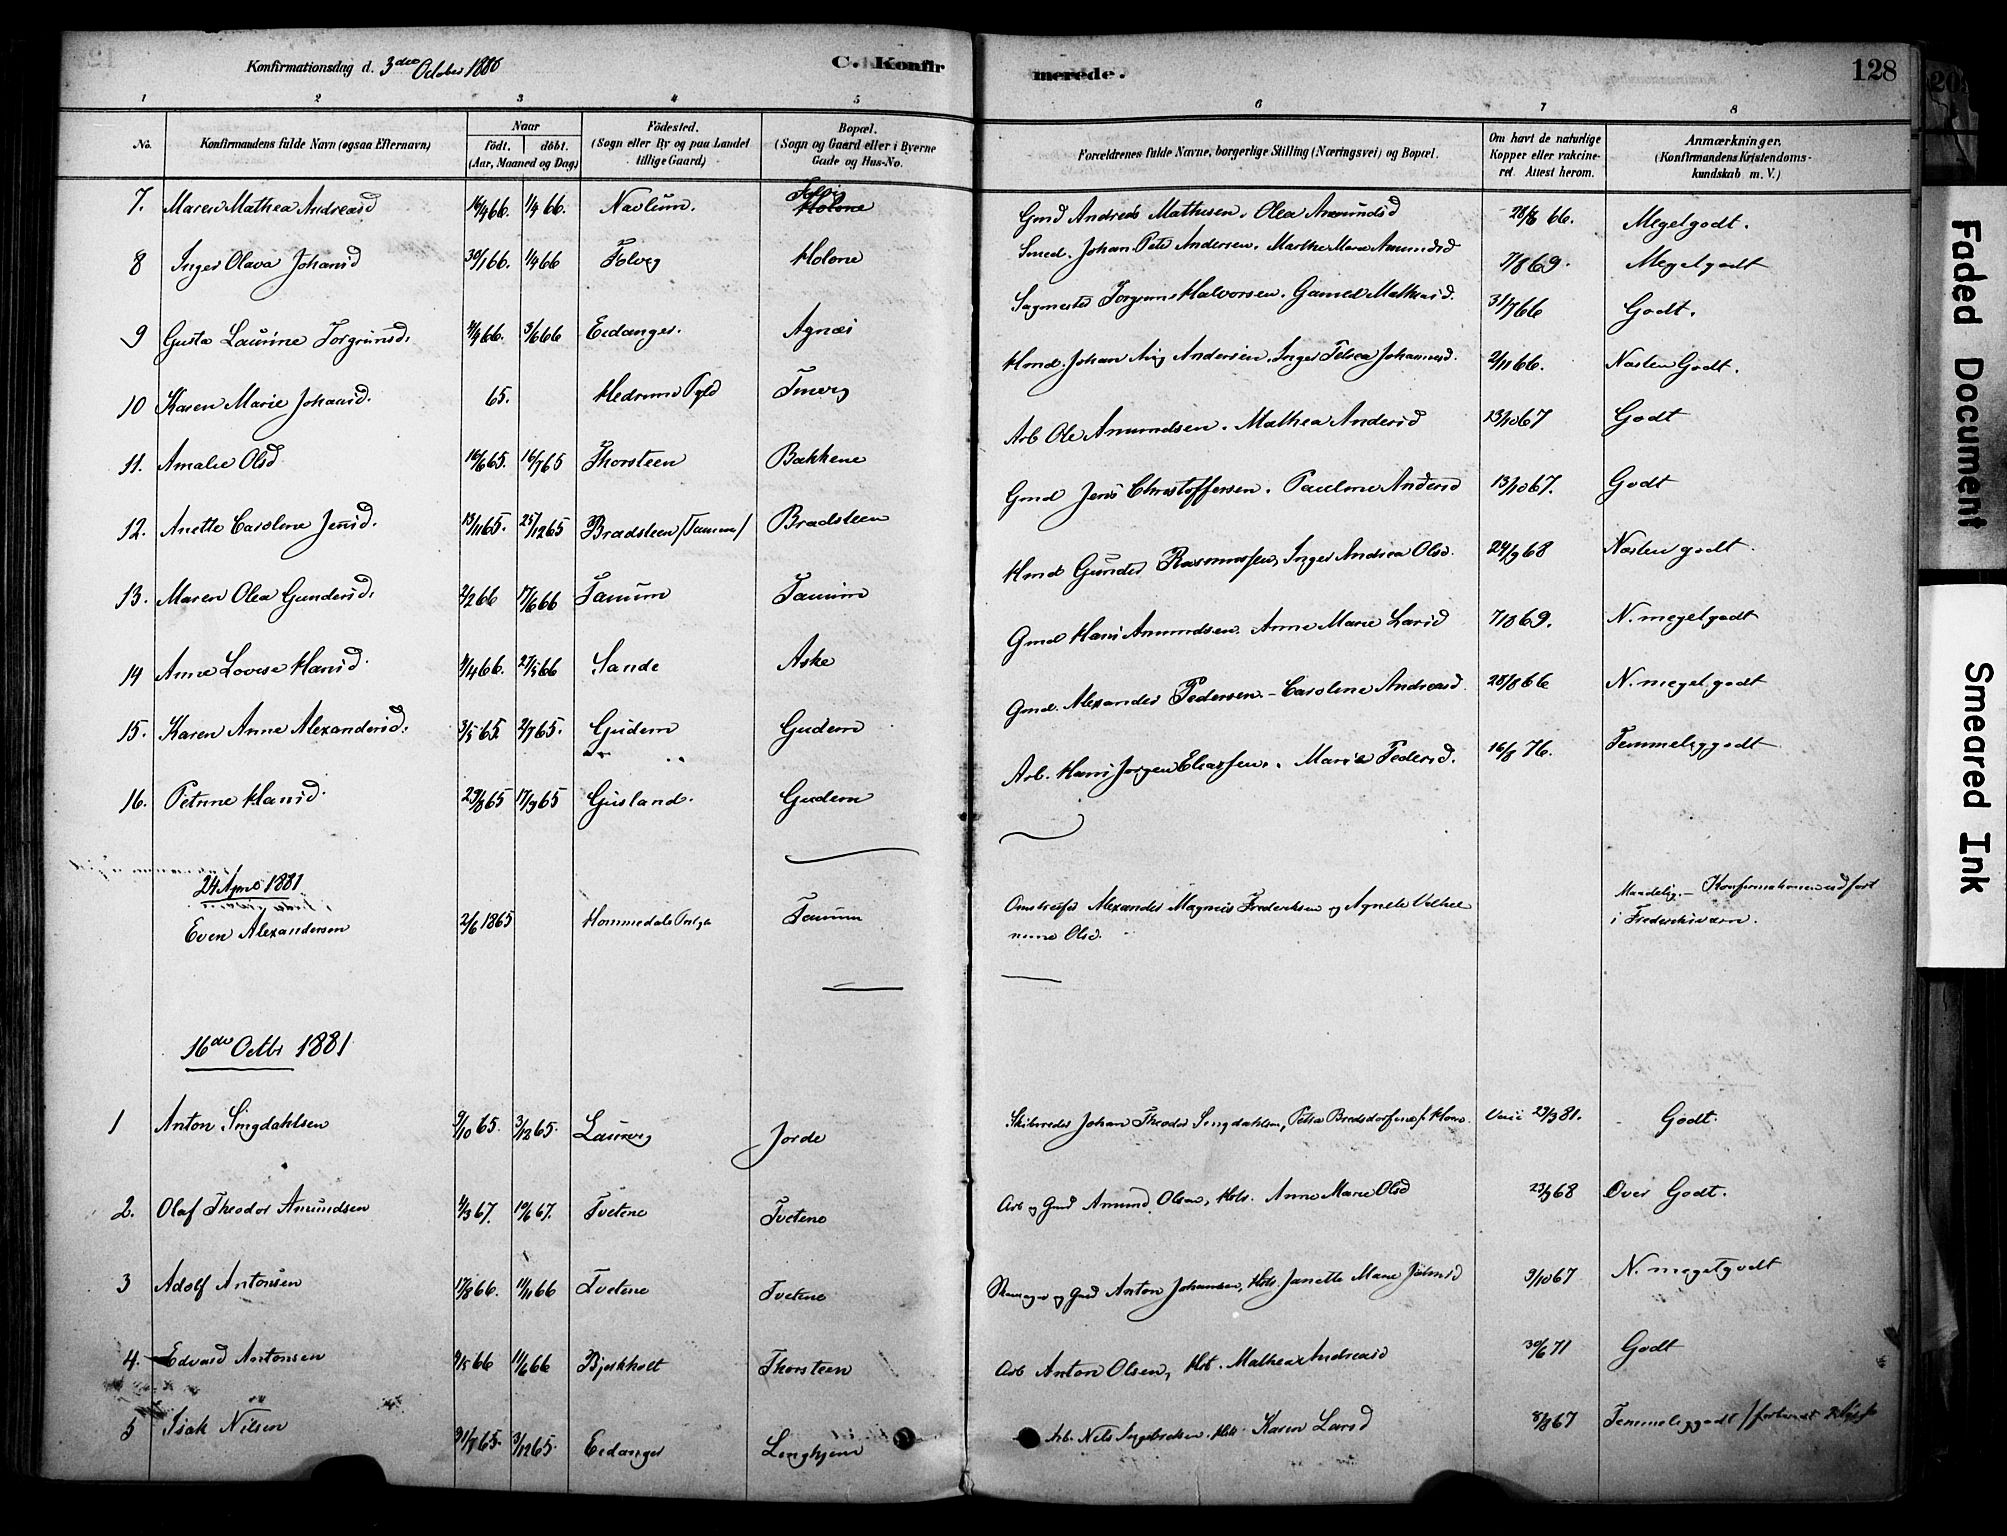 Konfirmationsdag d. 3die October 1880
C. Konfirmerede.
128
1 2 3 4 5 6 7 8
No.
Konfirmandens fulde Navn (ogsaa Efternavn)
Naar
födt. döbt.
(Aar, Maaned og Dag)
Födested.
(Sogn eller By og paa Landet tillige Gaard)
Bopæl.
(Sogn og Gaard eller i Byerne Gade og Hus-No.
Forældrenes fulde Navne, borgerlige Stilling (Næringsvei) og Bopæl.
Om havt de naturlige Kopper eller vakcineret. Attest herom.
Anmærkninger.
(Konfirmandens Kristendomskundskab m. V.)
7. Maren Mathea Andreasd Navlum. Holone Gmd Andreas Mathisen. Olea Amundsd 28/8 66. Megetgodt.
8 Inger Olava Johansd 30/1 66. 1/4 66 Tolveg Holone Smed. Johan Peter Andersen. Marthe Marie Amundsd 7/8 69. Megetgodt
9 Gusta Laurine Torgrimsd. 3/6 66 Eidanger. Agnæs Torgrim Halvorsen. 31/7 66 Godt.
10 Karen Marie Johansd. 65. Hedrums Pgld Hmd. Johan Andersen. Inger Johannesd. 2/11 66. Næsten Godt.
11. Amalie Olsd 16/6 65. 16/7 65 Thorsteen Bakkene Arb Ole Amundsen. Mathea Andersd 13/10 67 Godt
12. Anette Caroline Jensd. 13/11 65. 25/12 65 Bradsteen /Tanum/ Bradsteen Gmd Jens Christoffersen. Pauline Andersd 13/10 67. Godt
13. Maren Olea Gundersd. 2/2 66 17/6 66 Tanum Tanum Hmd Gunder Rasmussen, Inger Andrea Olsd. 24/9 68 Næsten godt.
14 Anne Lovise Hansd. 3/4 66. 27/5 66 Sande Aske Gmd Hans Amundsen. Anne Marie Larsd 7/10 69. N. megetgodt
15. Karen Anne Alexandersd. 3/5 65. 2/7 65. Gudem Gudem Gmd. Alexander Pedersen - Caroline Andreasd. 28/8 66 N. megetgodt
16. Petrine Hansd. 23/8 65 17/9 65 Gusland. Gudem Arb. Hans Jørgen Eliassen. Maria Pedersd. 16/8 76. Temmeliggodt
24 April 1881
Even Alexandersen 2/6 1865 Tanum Alexander Magnus Frederiksen og Agnete Vilhelmine Olsd. Maadelig. - Konfirmationen udført i Frederiksværn.
16de Octbr 1881
1 Anton Singdahlsen 9/10 65. 3/12 65. Laurvig Jorde Skibsreder Johan Theodor Singdahlsen, Petra 23/9 81. Godt.
2. Olaf Theodor Amundsen 4/3 67. 10/6 67. Tvetene Tvetene Arb og Gmd Amund Olsen, Hst. Anne Marie Olsd 23/9 68 Over Godt.
3 Adolf Antonsen 17/8 66. 11/11 66 Tvetene Tvetene og Gmd Anton Johansen, Hst. Janette Marie 9/10 67 N. megetgodt
4. Edvard Antonsen 9/5 66 11/6 66 Bjerkholt Thorsteen Arb Anton Olsen, Hst. Mathea Andreasd 30/6 71 Godt
5 Isak Nilsen 3/12 65. Eidanger Langhjem Arb. Nils Ingebretsen. Hst. Karen Larsd 8/9 67 Temmeliggodt
Faded Document
Smeared Ink